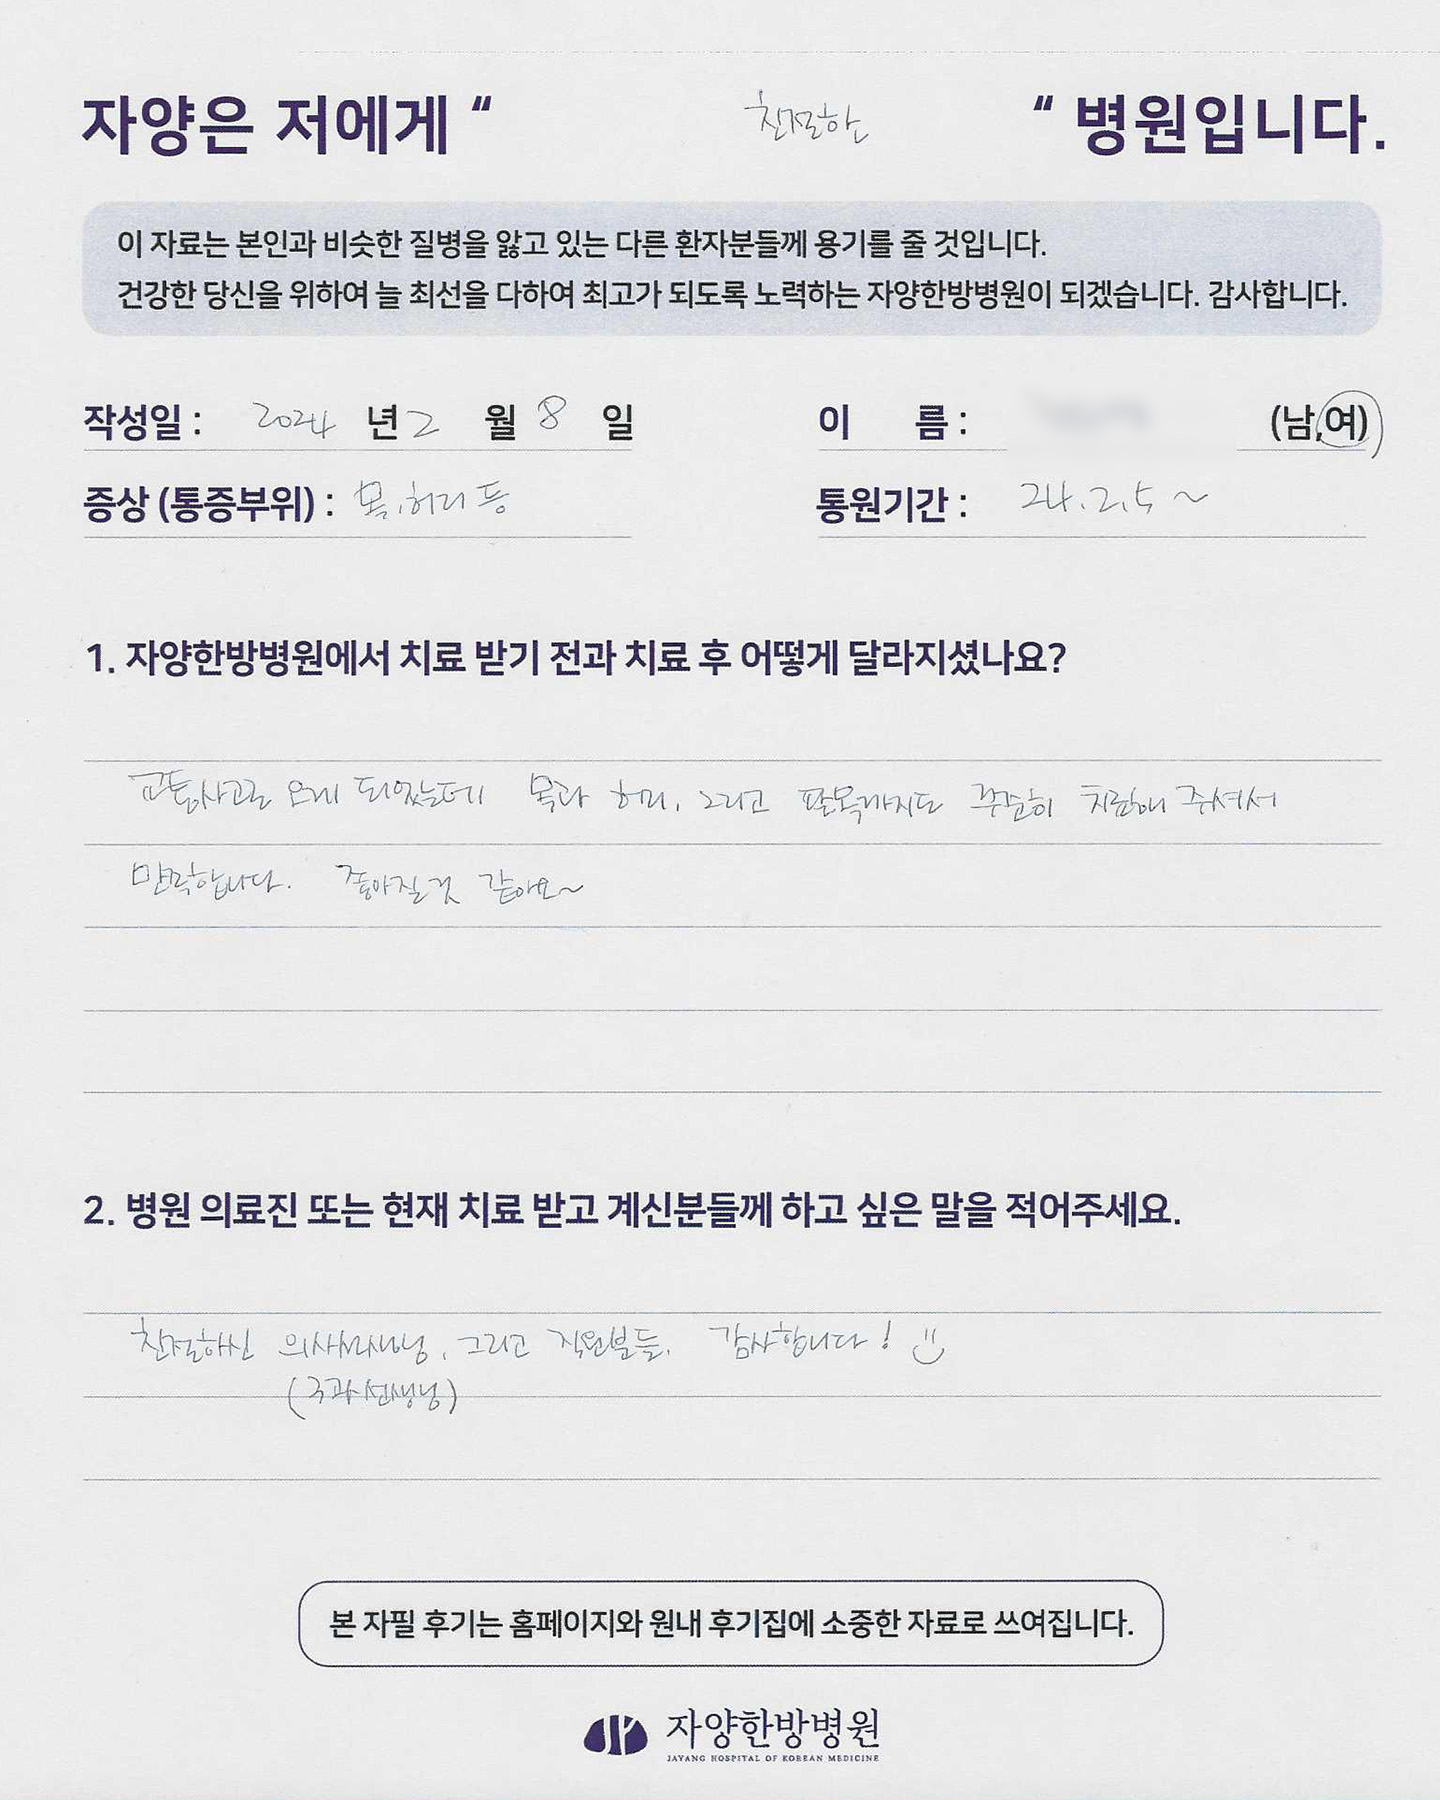 자양은 저에게 “ 친절한 “ 병원입니다.
이 자료는 본인과 비슷한 질병을 앓고 있는 다른 환자분들께 용기를 줄 것입니다.
건강한 당신을 위하여 늘 최선을 다하여 최고가 되도록 노력하는 자양한방병원이 되겠습니다. 감사합니다.
작성일 : 2024 년 2 월 8 일 이 름 : (남,여)
증상 (통증부위) : 목,허리 등 통원기간 : 24.2.5 ~
1. 자양한방병원에서 치료 받기 전과 치료 후 어떻게 달라지셨나요?
교통사고로 오게 되었는데 목과 허리, 그리고 팔목까지도 꾸준히 치료해 주셔서
만족합니다. 좋아질것 같아요~
2. 병원 의료진 또는 현재 치료 받고 계신분들께 하고 싶은 말을 적어주세요.
친절하신 의사선생님, 그리고 직원분들, 감사합니다!
선생님)
본 자필 후기는 홈페이지와 원내 후기집에 소중한 자료로 쓰여집니다.
자양한방병원
JAYANG HOSPITAL OF KOREAN MEDICINE